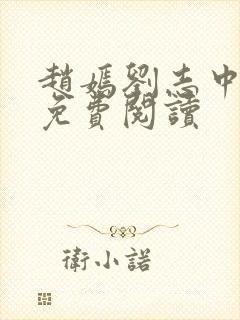 趙媽劉志中
免費閱讀
衛小諾